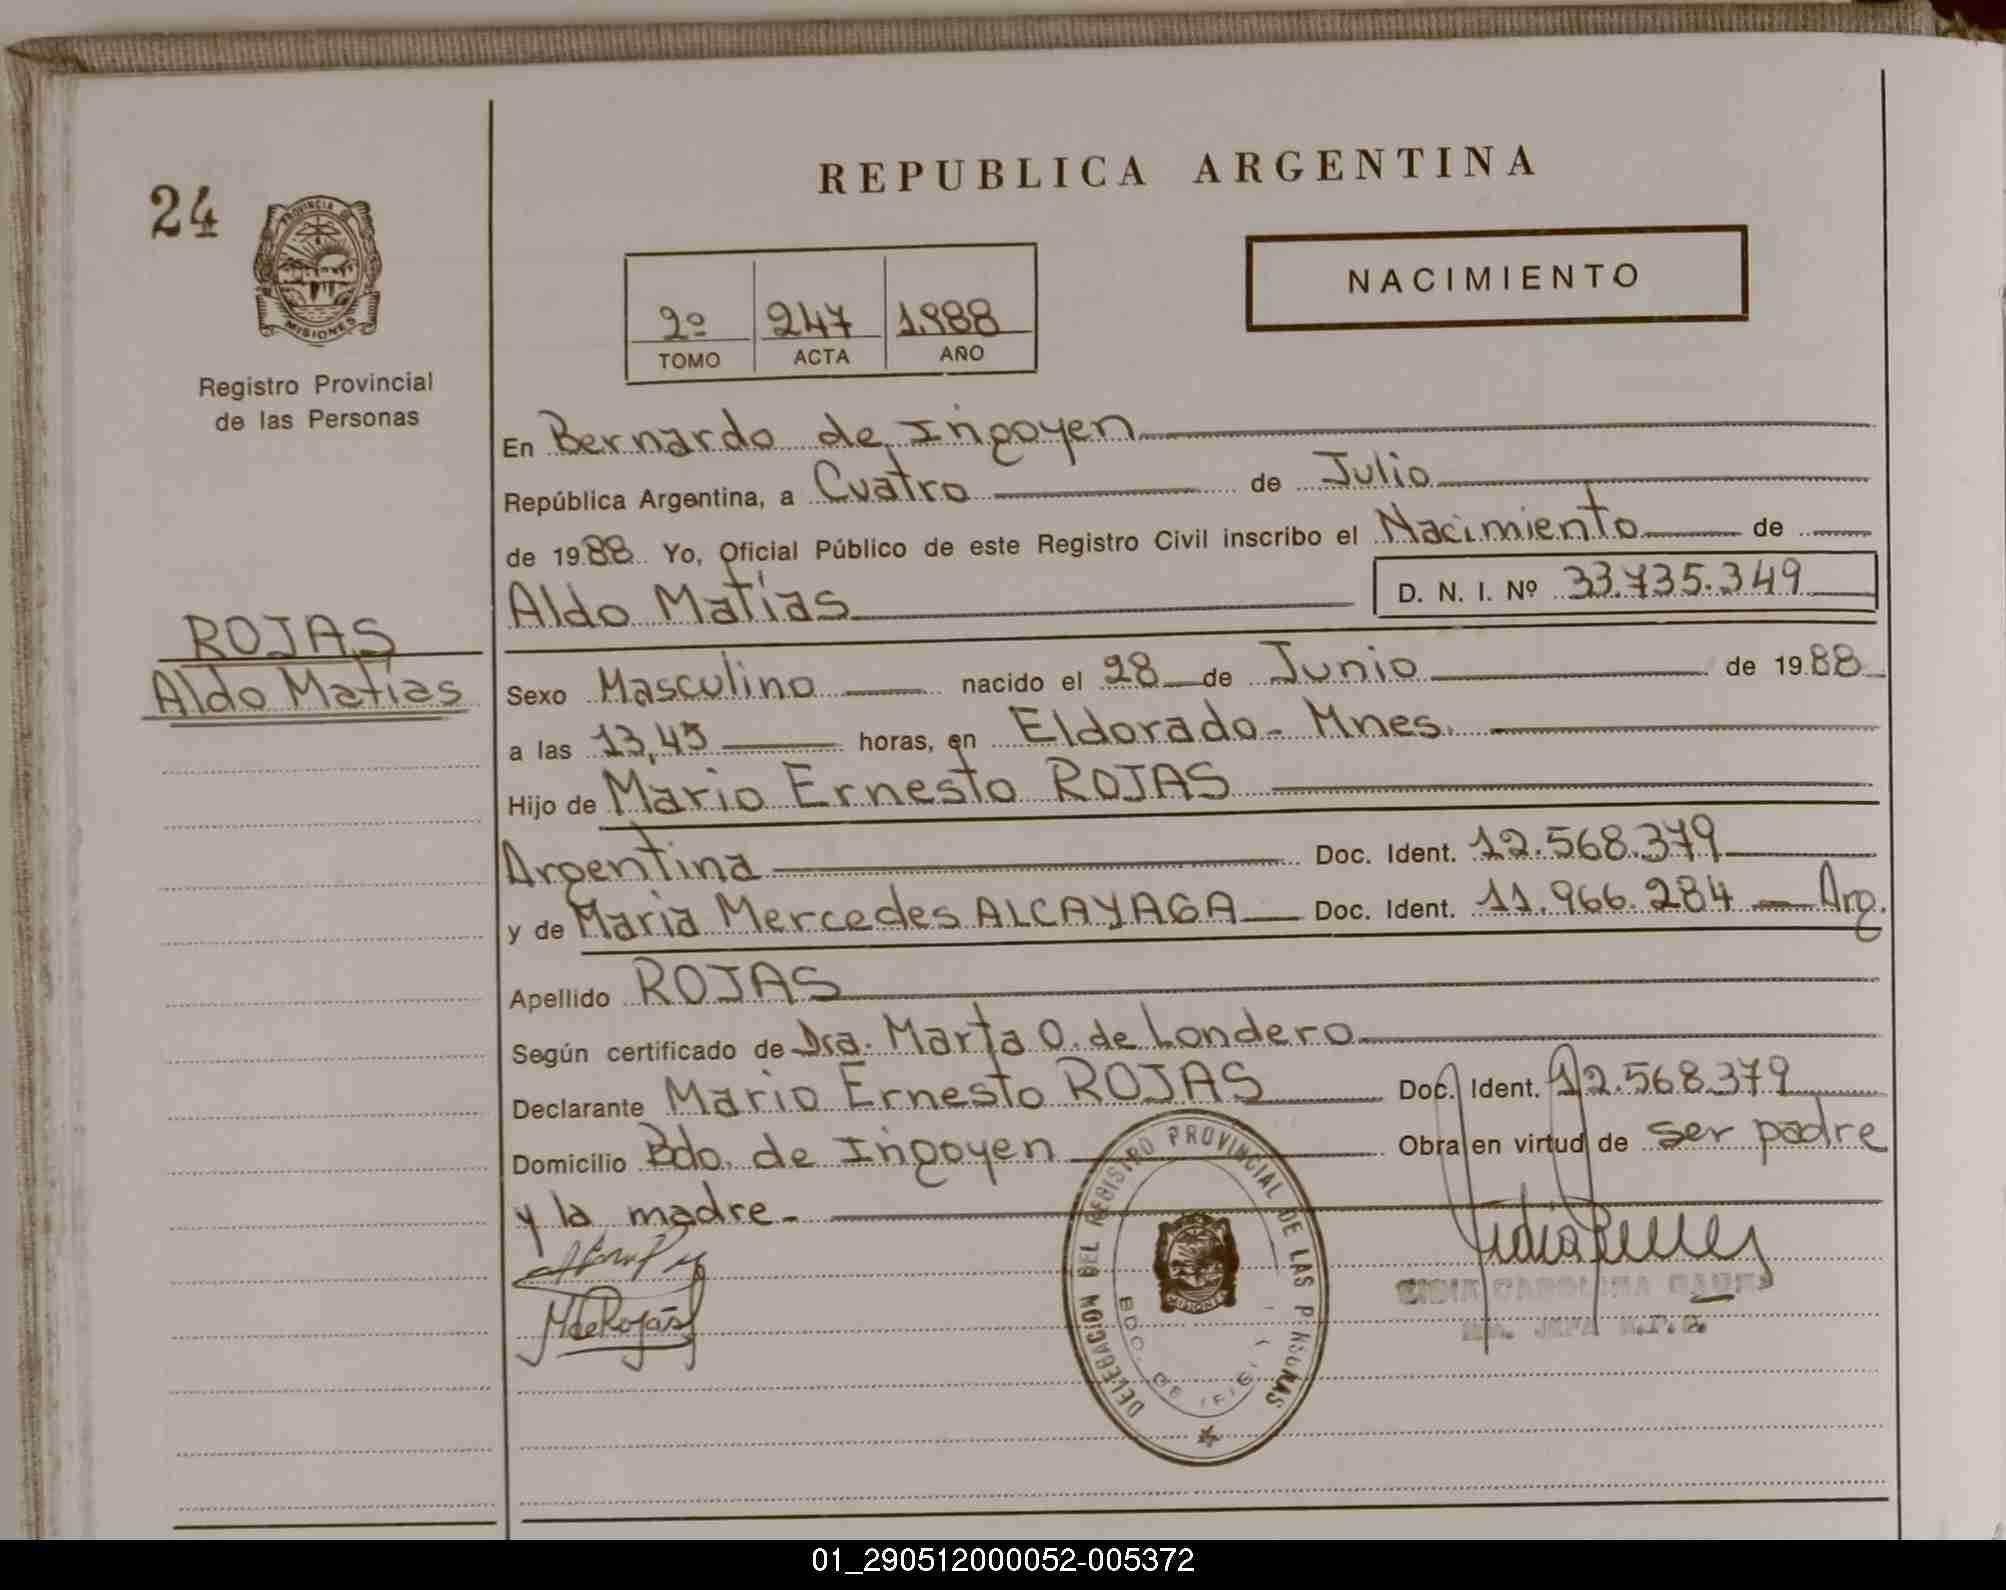 24
PROVINCIA DE
MISIONES
Registro Provincial
de las Personas
REPUBLICA ARGENTINA
2º 247 1.988
TOMO ACTA AÑO
NACIMIENTO
En Bernardo de Irigoyen
República Argentina, a Cuatro de Julio
de 1988 Yo, Oficial Público de este Registro Civil inscribo el Nacimiento de
Aldo Matias D. N. I. Nº 33.735.349
ROJAS
Aldo Matias
Sexo Masculino nacido el 28 de Junio de 1988
a las 13,45 horas, en Eldorado - Mnes.
Hijo de Mario Ernesto ROJAS
Argentina Doc. Ident. 12.568.379
y de Maria Mercedes ALCAYAGA Doc. Ident. 11.966.284 - Arg.
Apellido ROJAS
Según certificado de Dra. Marta O. de Londero
Declarante Mario Ernesto ROJAS Doc. Ident. 12.568.379
Domicilio Bdo. de Irigoyen Obra en virtud de ser padre
y la madre.-
MdeRojas
DELEGACION DEL REGISTRO PROVINCIAL DE LAS PERSONAS
BDO. DE
MISIONES
CAROLINA
JEFA
01_290512000052-005372